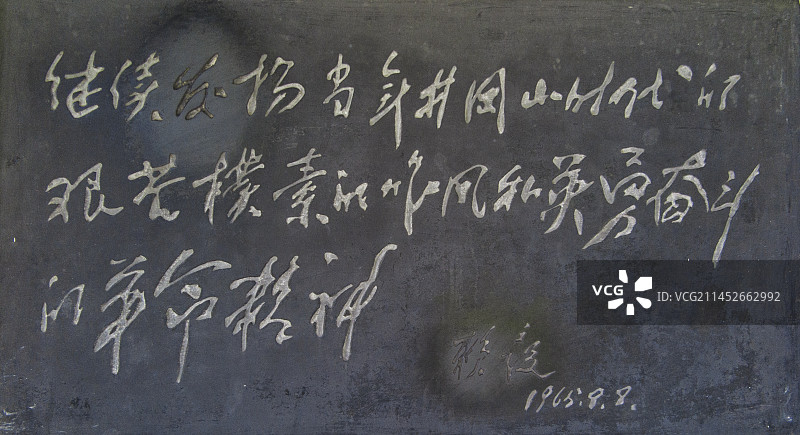 继续发扬当年井冈山时代的
艰苦樸素的作风和英勇奋斗
的革命精神
1965.8.8.
VCG ID:VCG211452662992